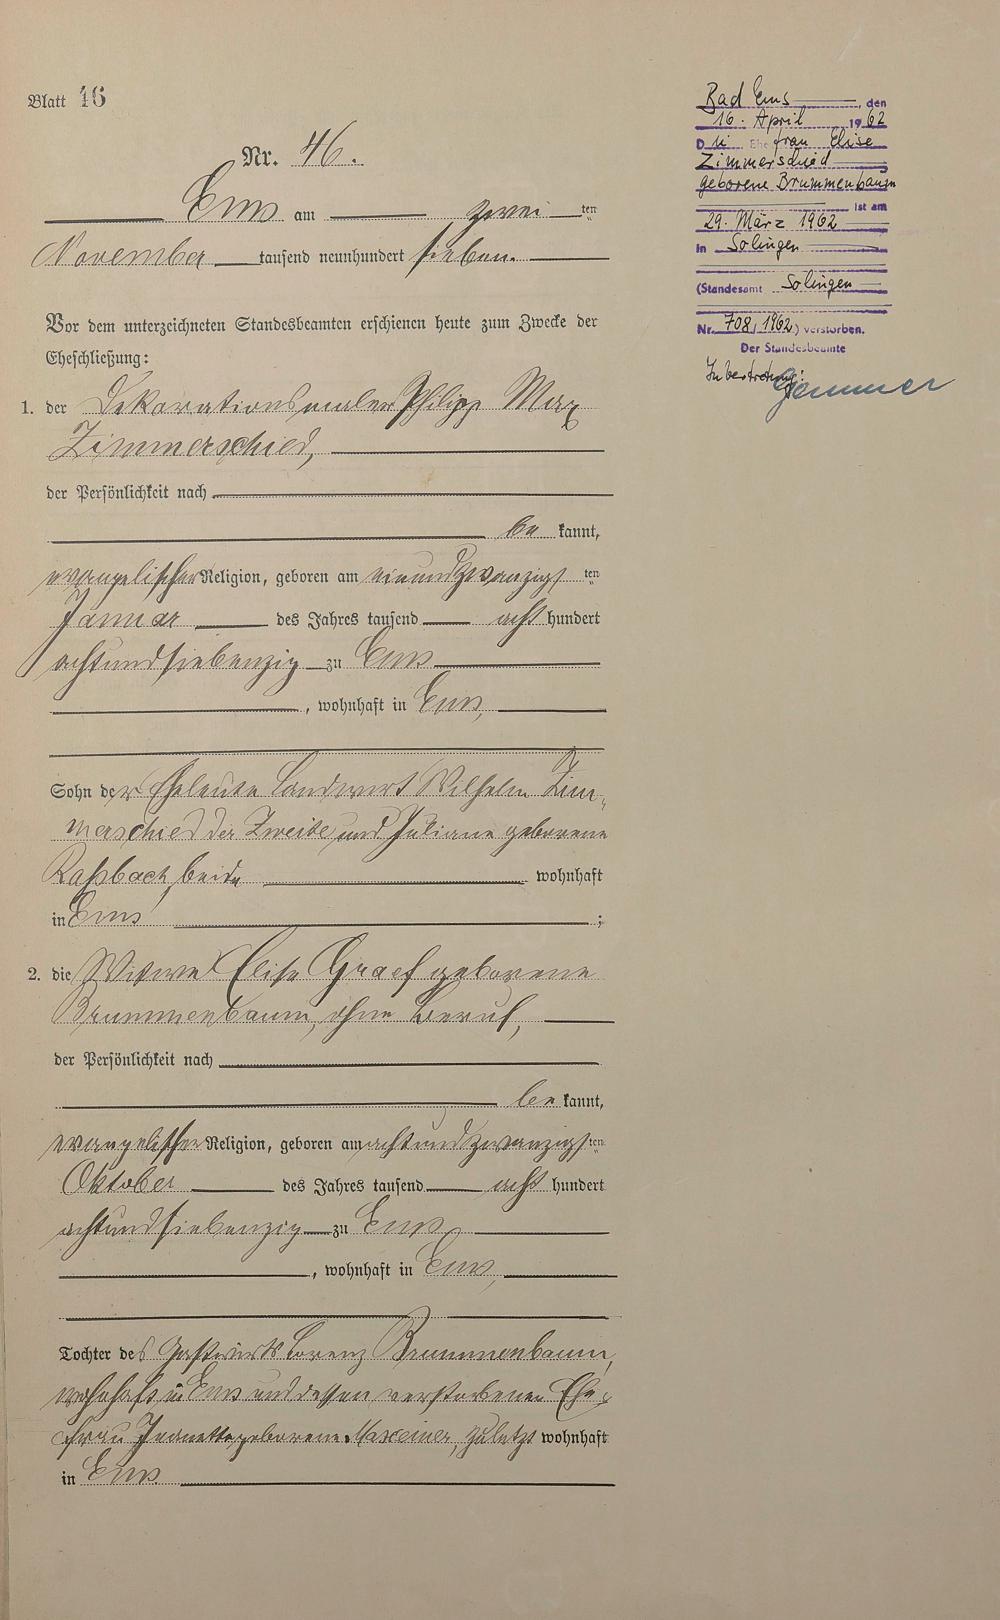 Blatt 46
Nr. 46.
Ems am zwei ten
November tausend neunhundert sieben.
Vor dem unterzeichneten Standesbeamten erschienen heute zum Zwecke der
Eheschließung:
1. der Dekorationsmaler Philipp Max
Zimmerschied,
der Persönlichkeit nach
be kannt,
evangelischer Religion, geboren am einundzwanzigs ten
Januar des Jahres tausend acht hundert
achtundsiebenzig zu Ems
, wohnhaft in Ems,
Sohn der Eheleute Landwirt Wilhelm Zim-
merschied der Zweite und Juliane geborene
beide wohnhaft
in Ems ;
2. die Witwe Elise Graef geborene
Brummenbaum, ohne Beruf,
der Persönlichkeit nach
be kannt,
evangelischer Religion, geboren am achtundzwanzigs ten
Oktober des Jahres tausend acht hundert
achtundsiebenzig zu Ems
, wohnhaft in Ems,
Tochter des Gastwirts Lorenz Brummenbaum,
wohnhaft in Ems und dessen verstorbenen Ehe-
frau Jeanette geborene Maxeiner, zuletzt wohnhaft
in Ems
Bad Ems, den
16. April 1962
Die Ehefrau Elise
Zimmerschied
geborene Brummenbaum
ist am
29. März 1962
in Solingen
(Standesamt Solingen
Nr. 708/1962) verstorben.
Der Standesbeamte
In Vertretung: